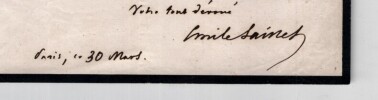 Votre tout dévoué
Emile Sainet
Paris, ce 30 Mars.